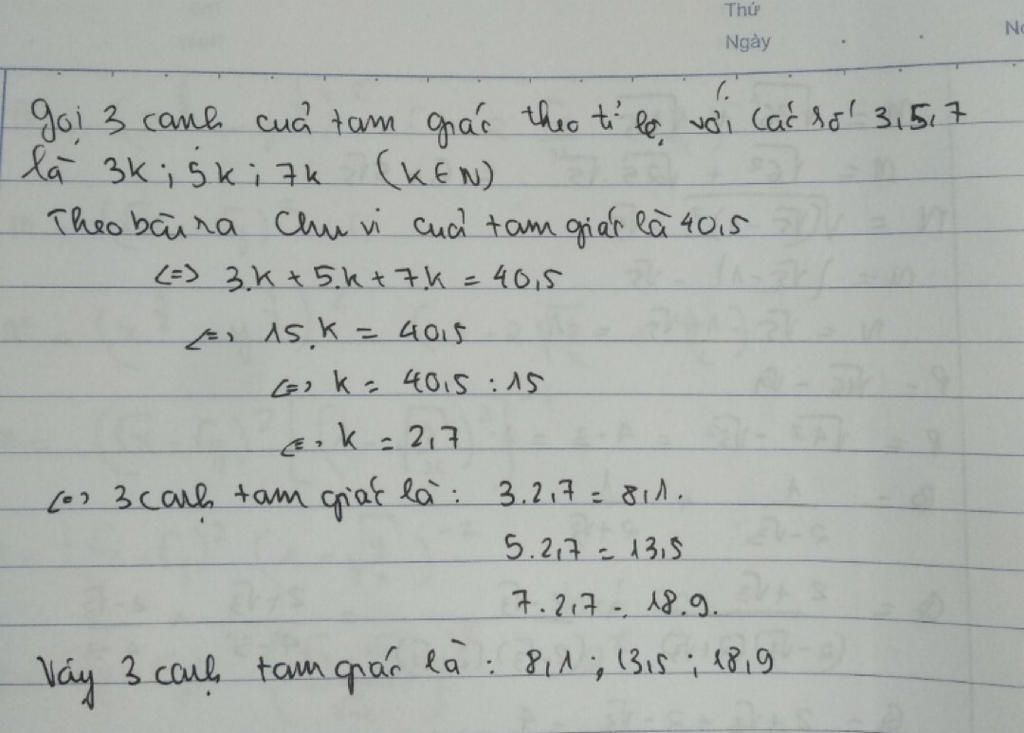 Thứ
Ngày
gọi 3 cạnh cuả tam giác theo tỉ lệ với các số 3,5,7
là 3k; 5k; 7k (k∈N)
Theo bài ra Chu vi cuả tam giác là 40,5
<=> 3.k + 5.k + 7.k = 40,5
<=> 15.k = 40,5
<=> k = 40,5 : 15
<=> k = 2,7
<=> 3 cạnh tam giác là: 3.2,7 = 8,1.
5.2,7 = 13,5
7.2,7 = 18.9.
Vậy 3 cạnh tam giác là: 8,1 ; 13,5 ; 18,9